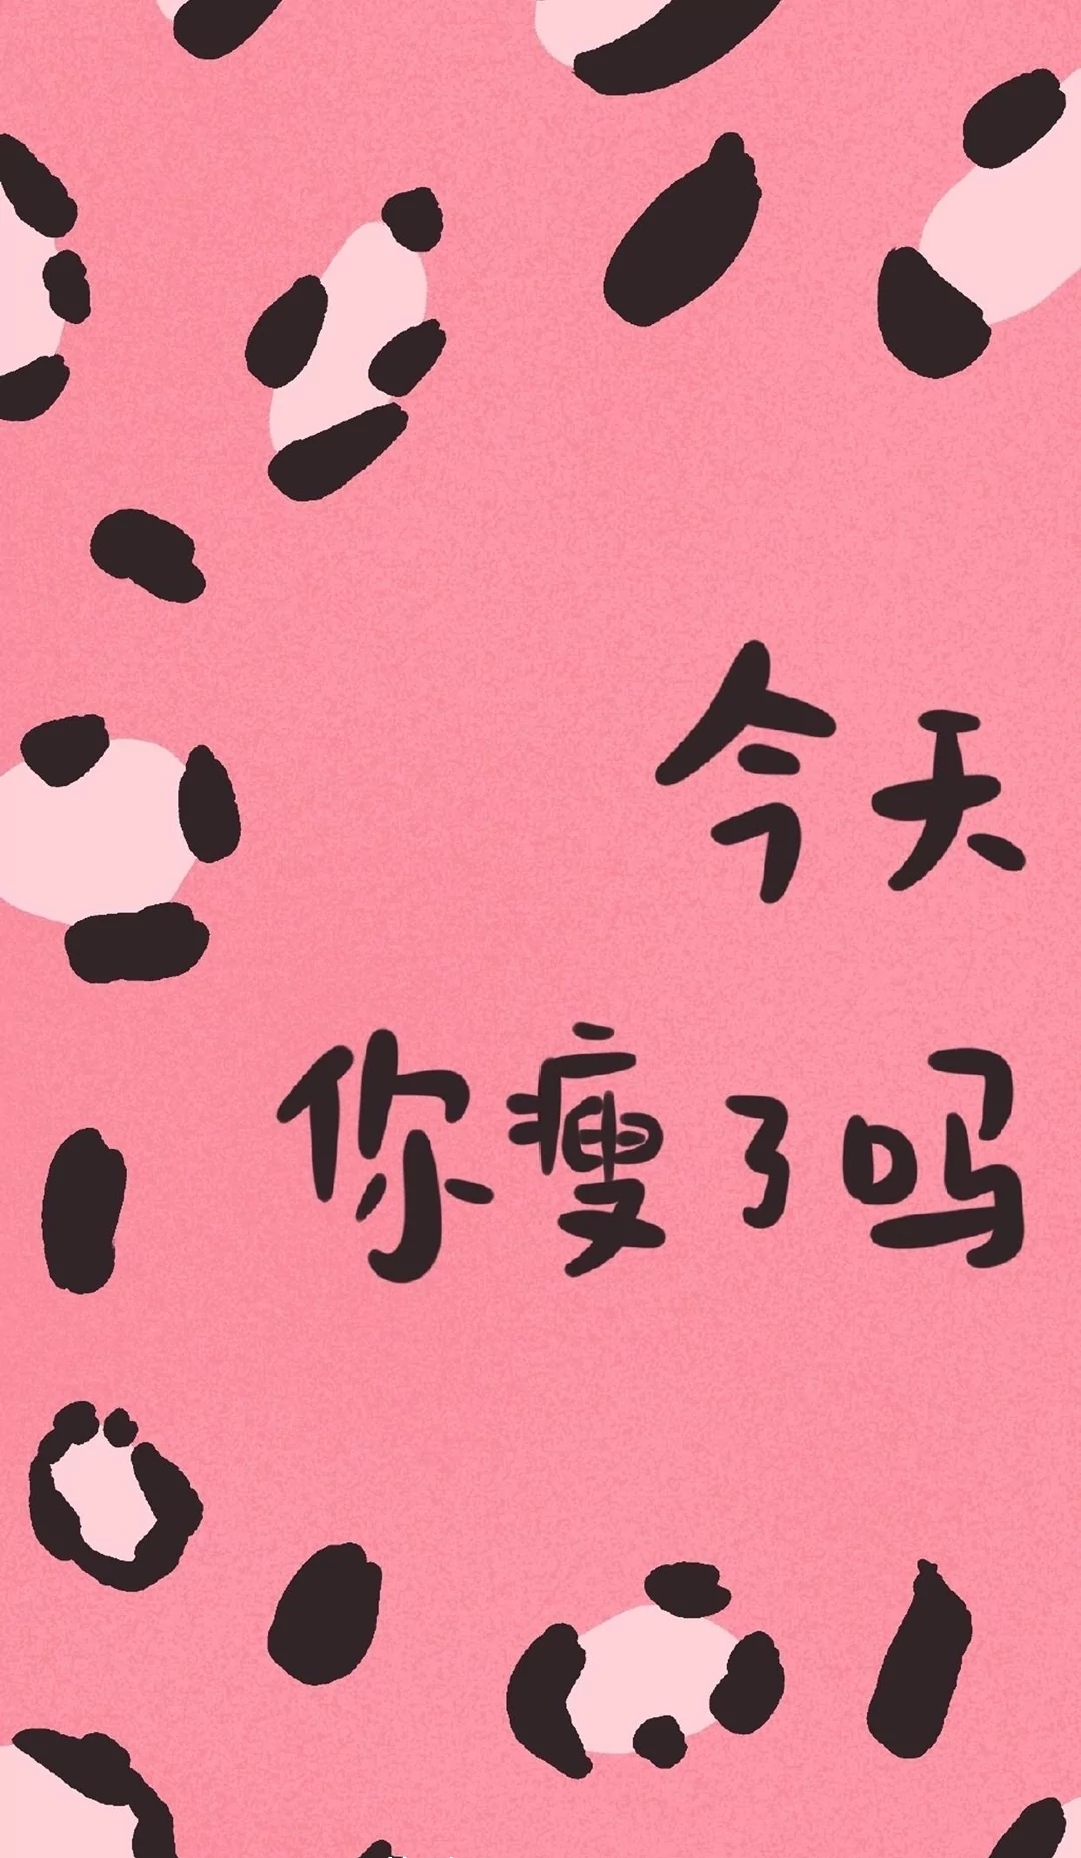 今天
你瘦了吗